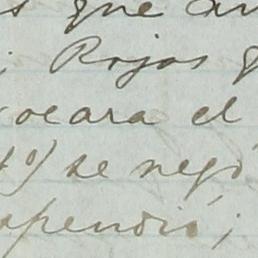 s que an
; Rojas q
ocara el
4º) se negó
spendió;